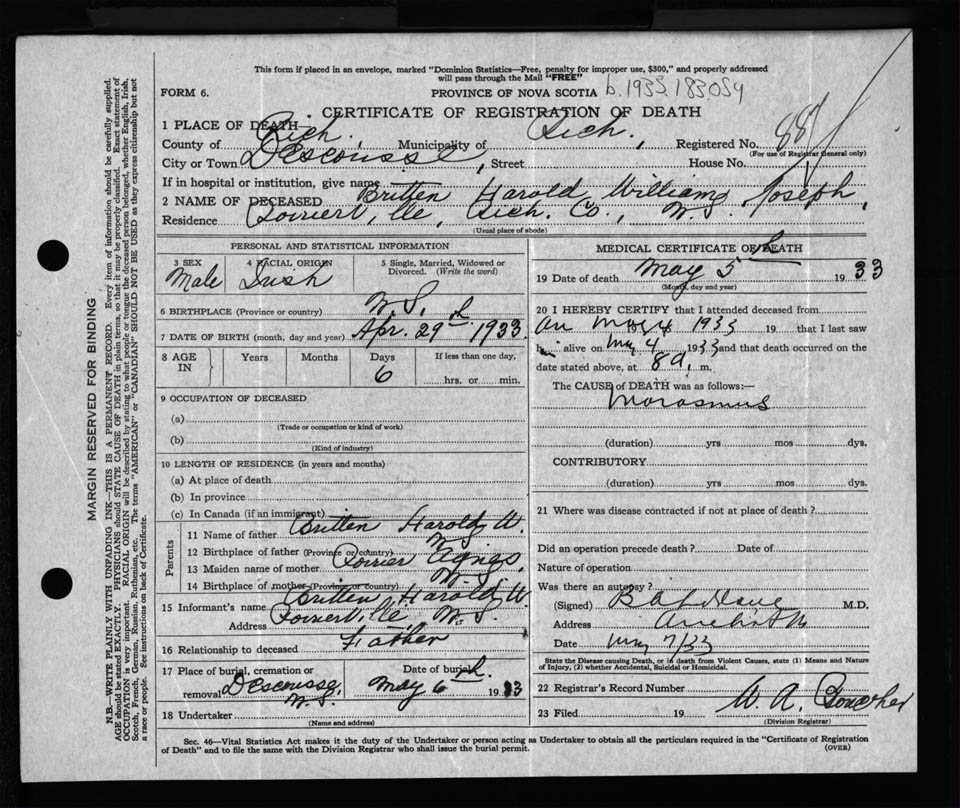 This form if placed in an envelope, marked "Dominion Statistics—Free, penalty for improper use, $300," and properly addressed
will pass through the Mail "FREE"
FORM 6. PROVINCE OF NOVA SCOTIA b.1933.183059
CERTIFICATE OF REGISTRATION OF DEATH
1 PLACE OF DEATH
County of Rich. Municipality of Rich. , Registered No. 887
(For use of Registrar General only)
City or Town Descousse , Street House No.
If in hospital or institution, give name
2 NAME OF DECEASED Britten Harold William Joseph,
Residence Poirierville, Rich. Co., N.S.
(Usual place of abode)
PERSONAL AND STATISTICAL INFORMATION
3 SEX 4 RACIAL ORIGIN 5 Single, Married, Widowed or Divorced. (Write the word)
Male Irish
6 BIRTHPLACE (Province or country) N.S.
7 DATE OF BIRTH (month, day and year) Apr. 29th 1933
8 AGE IN Years Months Days If less than one day,
6 hrs. or min.
9 OCCUPATION OF DECEASED
(a)
(Trade or occupation or kind of work)
(b)
(Kind of industry)
10 LENGTH OF RESIDENCE (in years and months)
(a) At place of death
(b) In province
(c) In Canada (if an immigrant)
Parents
11 Name of father Britten Harold W.
12 Birthplace of father (Province or country) N.S.
13 Maiden name of mother Poirier Agnes
14 Birthplace of mother (Province or country) N.S.
15 Informant's name Britten Harold W
Address Poirierville, N.S.
16 Relationship to deceased Father
17 Place of burial, cremation or Date of burial
removal Descousse, N.S. May 6th 1933
18 Undertaker
(Name and address)
MEDICAL CERTIFICATE OF DEATH
19 Date of death May 5th 1933
(Month, day and year)
20 I HEREBY CERTIFY that I attended deceased from
on May 4 1933 19 that I last saw
him alive on May 4 1933 and that death occurred on the
date stated above, at 8 a. m.
The CAUSE of DEATH was as follows:—
Marasmus
(duration) yrs mos dys.
CONTRIBUTORY
(duration) yrs mos dys.
21 Where was disease contracted if not at place of death?
Did an operation precede death? Date of
Nature of operation
Was there an autopsy?
(Signed) M.D.
Address Arichat N.S.
Date May 7/33
State the Disease causing Death, or in death from Violent Causes, state (1) Means and Nature
of Injury, (2) whether Accidental, Suicidal or Homicidal.
22 Registrar's Record Number
23 Filed 19 W. A.
(Division Registrar)
Sec. 46—Vital Statistics Act makes it the duty of the Undertaker or person acting as Undertaker to obtain all the particulars required in the "Certificate of Registration
of Death" and to file the same with the Division Registrar who shall issue the burial permit. (OVER)
MARGIN RESERVED FOR BINDING
N.B.—WRITE PLAINLY WITH UNFADING INK—THIS IS A PERMANENT RECORD. Every item of information should be carefully supplied.
AGE should be stated EXACTLY. PHYSICIANS should STATE CAUSE OF DEATH in plain terms, so that it may be properly classified. Exact statement of
OCCUPATION is very important. RACIAL ORIGIN will be described by stating to what people or tongue the deceased person belonged, whether English, Irish,
Scotch, French, German, Russian, Ruthenian, etc. The terms "AMERICAN" or "CANADIAN" SHOULD NOT BE USED as they express citizenship but not
a race or people. See instructions on back of Certificate.